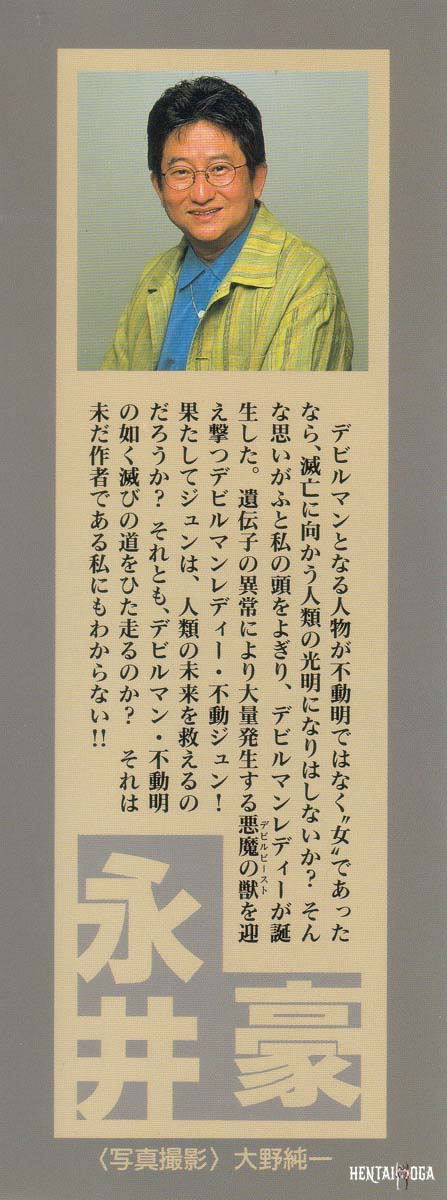 デビルマンとなる人物が不動明ではなく〝女〟であった
なら、滅亡に向かう人類の光明になりはしないか？ そん
な思いがふと私の頭をよぎり、デビルマンレディーが誕
生した。遺伝子の異常により大量発生する悪魔の獣を迎
デビルビースト
え撃つデビルマンレディー・不動ジュン！
果たしてジュンは、人類の未来を救えるの
だろうか？ それとも、デビルマン・不動明
の如く滅びの道をひた走るのか？ それは
未だ作者である私にもわからない!!
永井豪
〈写真撮影〉大野純一
HENTAI YOGA